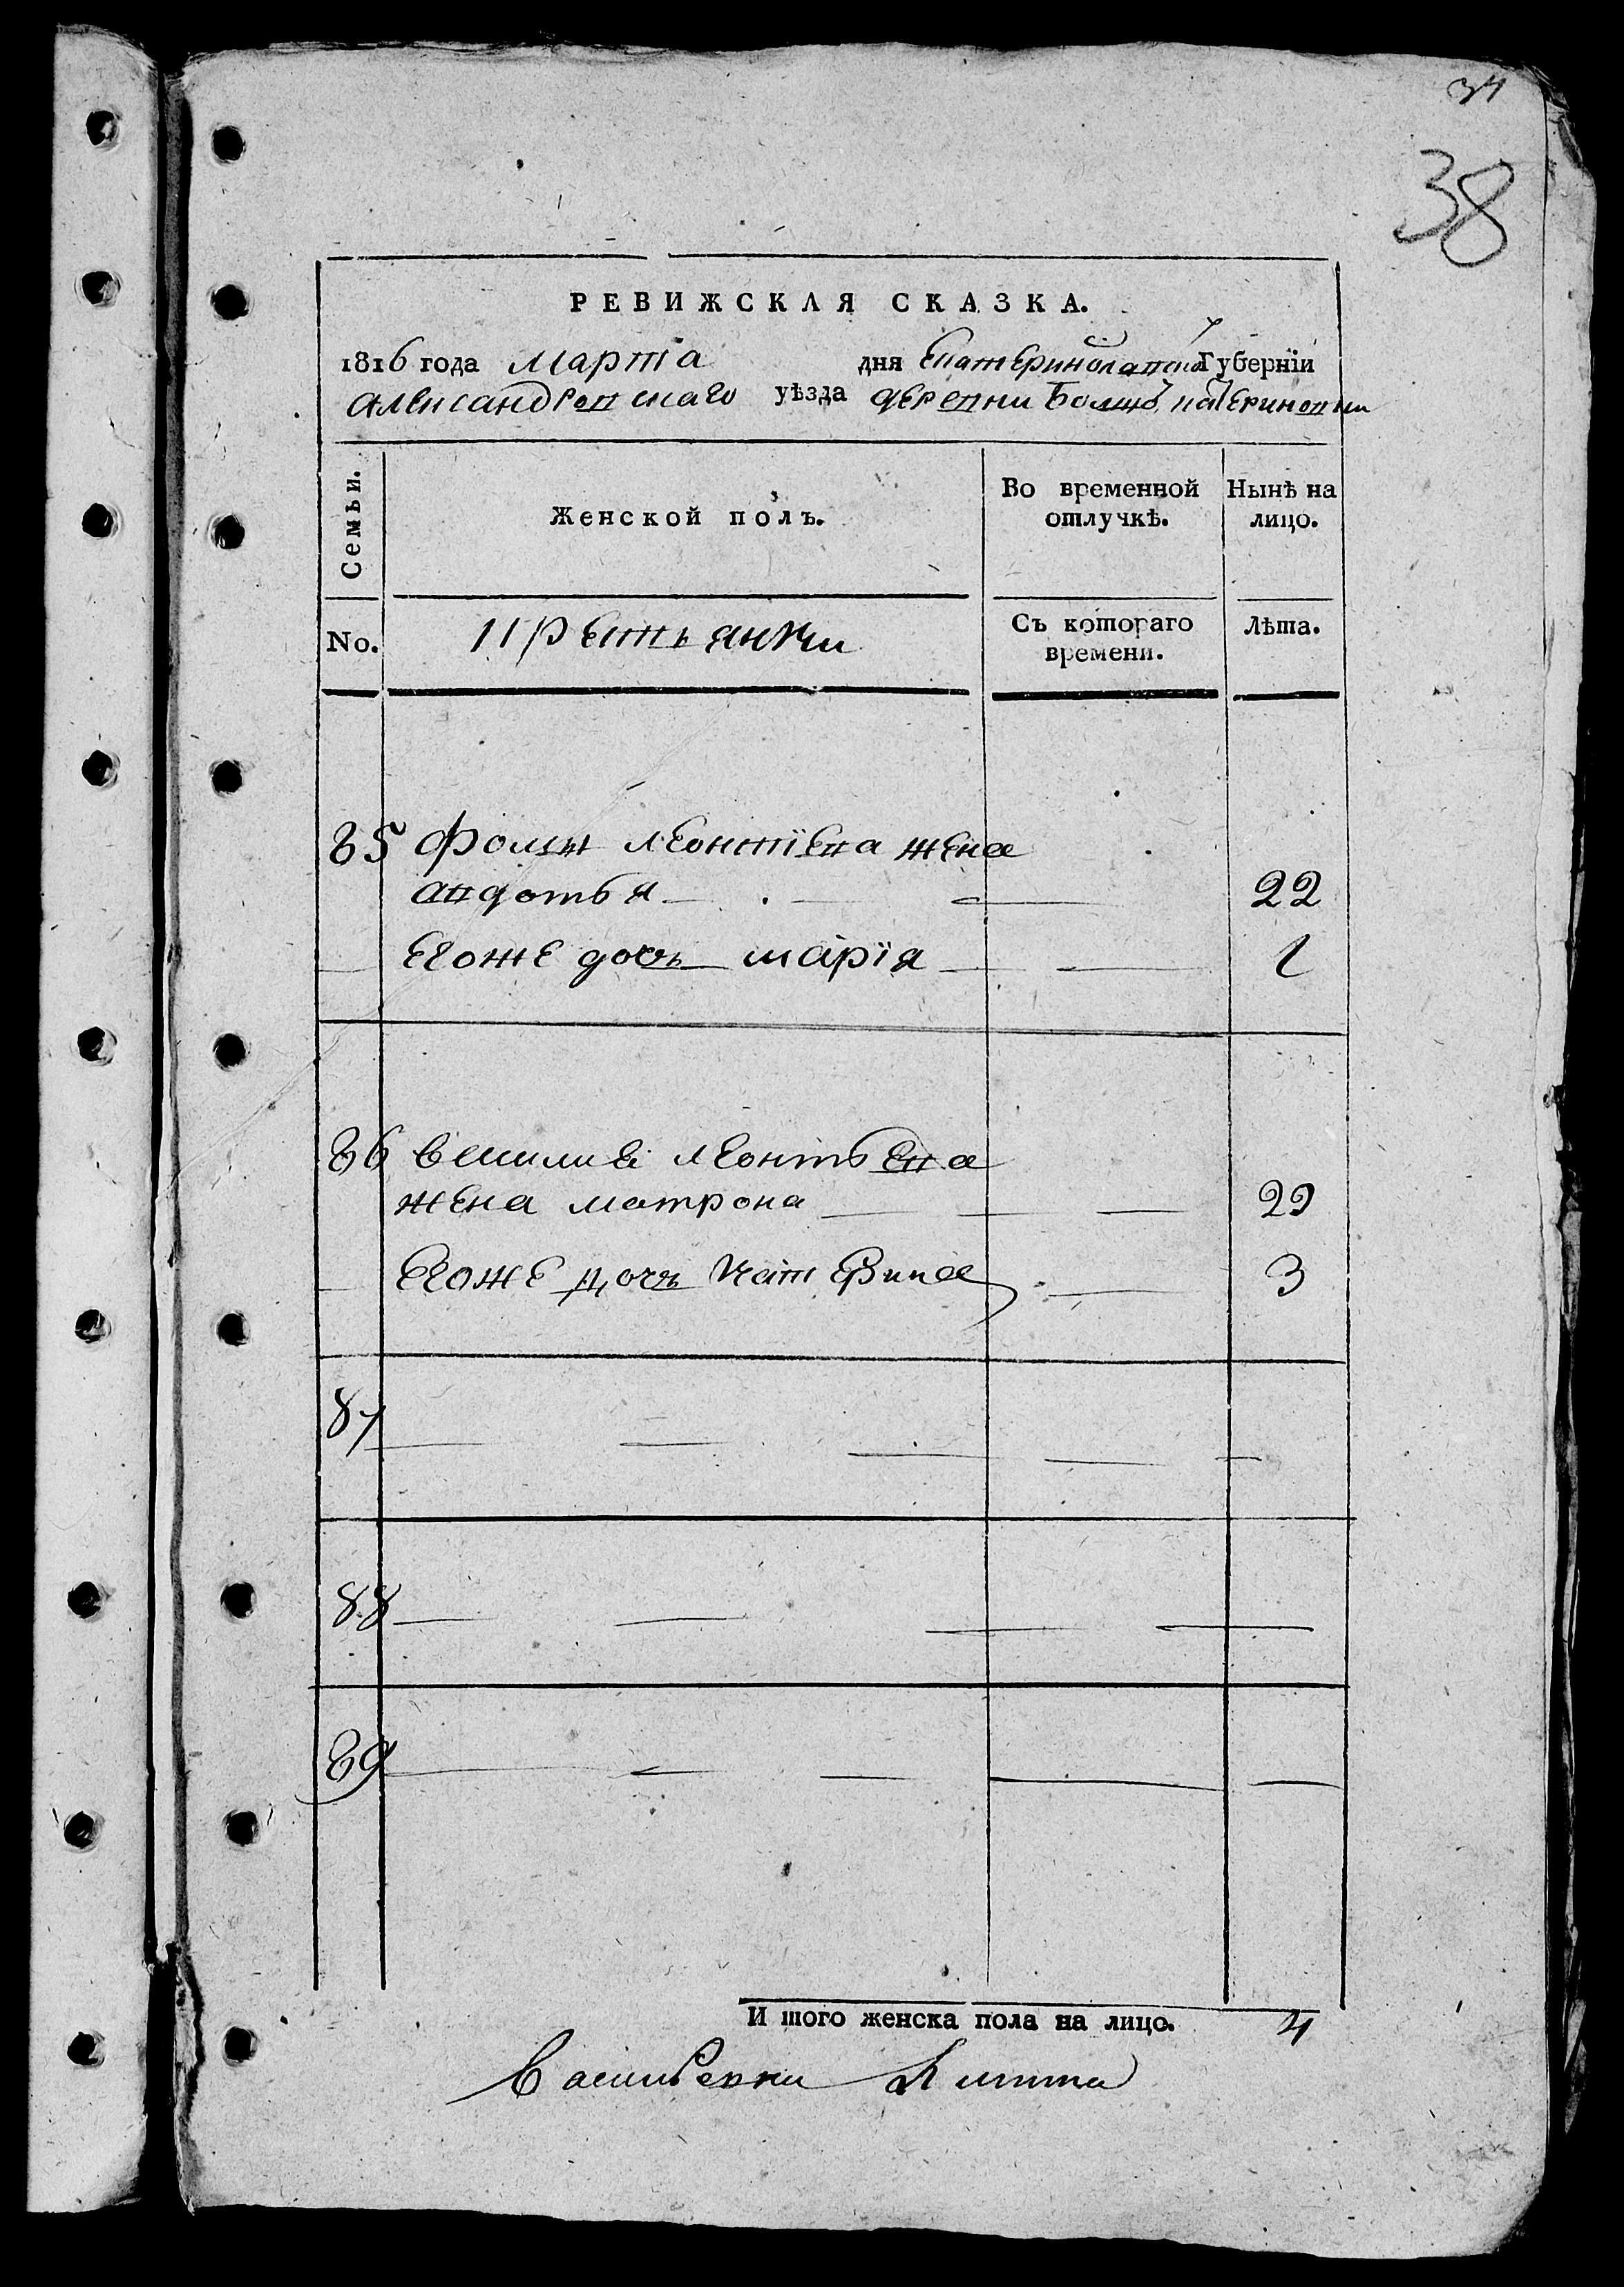 34
38
РЕВИЖСКАЯ СКАЗКА.
1816 года Марта дня Екатеринославской Губерніи
Александровскаго уѣзда деревни
Семьи.
Женской полъ.
Во временной отлучкѣ.
Нынѣ на лицо.
No.
крестьянки
Съ котораго времени.
Лѣта.
85 Фомы леонтіева жена
авдотья 22
егоже дочь марія 1
86 василия леонтьева
жена матрона 29
Егоже дочь катерина 3
87
88
89
И того женска пола на лицо. 4